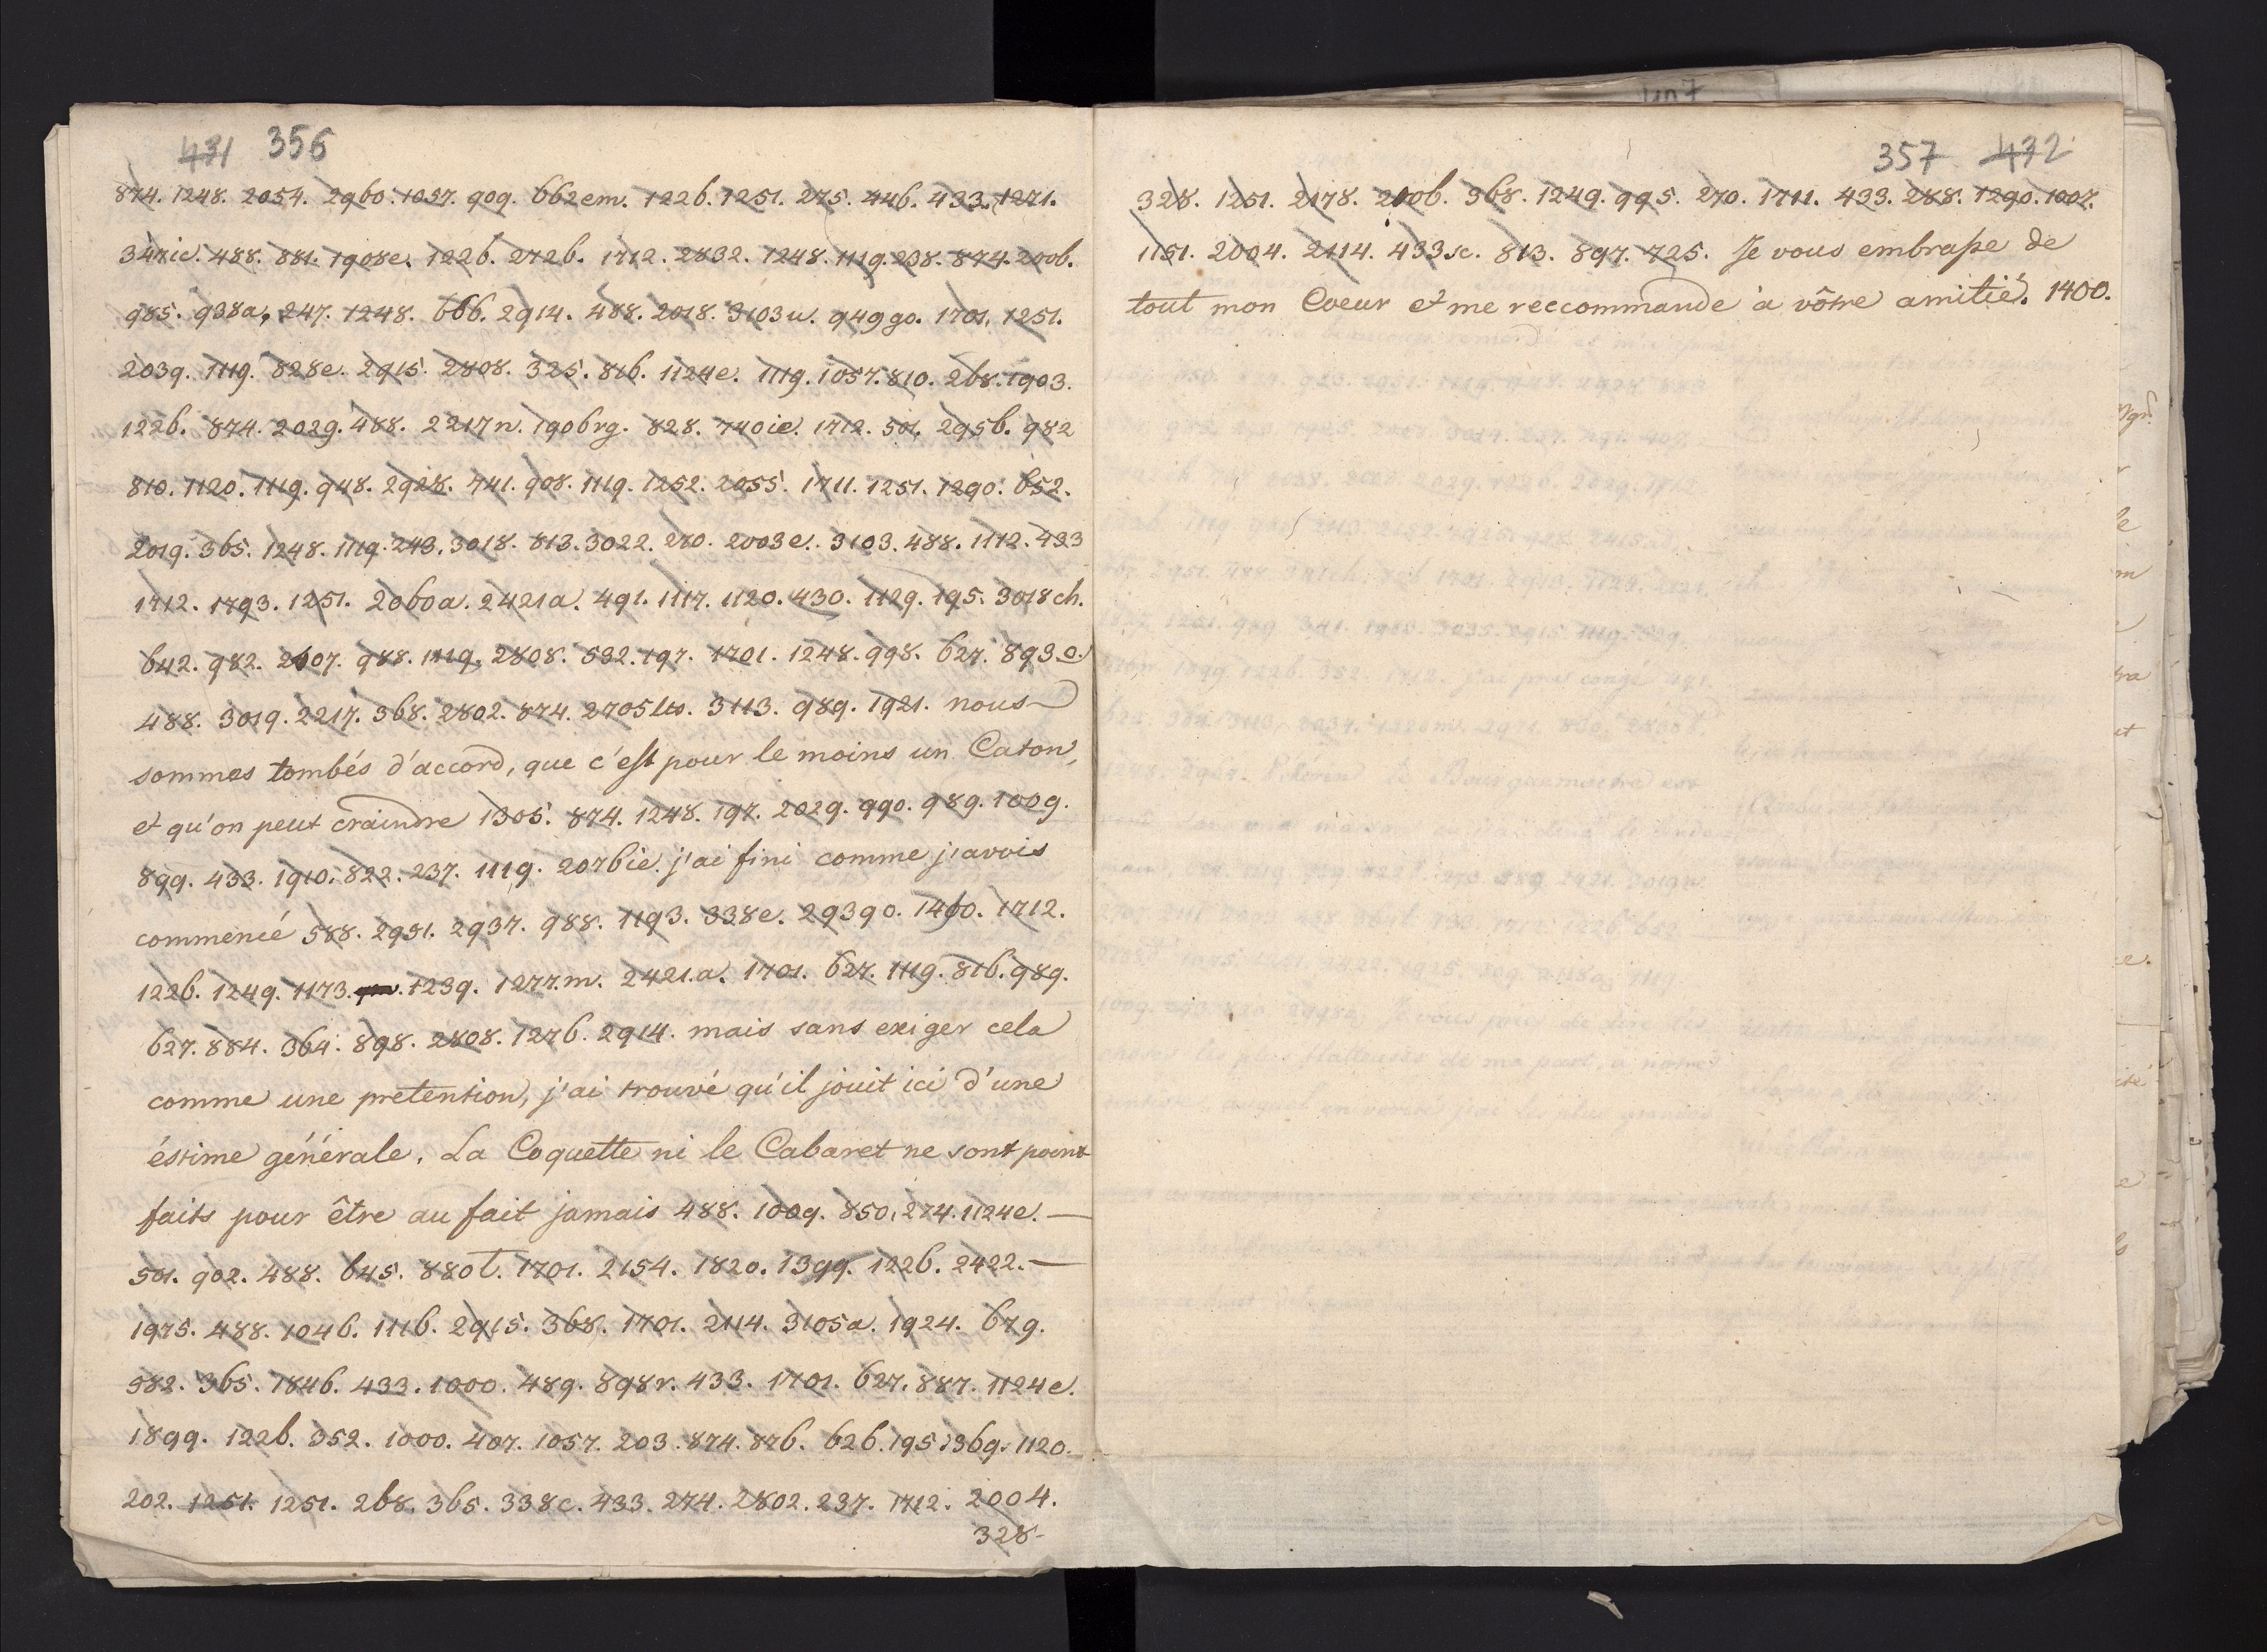 431 356
874. 1248. 2054. 2960. 1057. 909. 662em. 1226. 1251. 275. 446. 433. 1271.
347ic. 488. 881. 1908e. 1226. 2726. 1712. 2832. 1248. 1119. 238. 874. 2006.
985. 938a, 247. 1248. 666. 2914. 488. 2018. 3103u. 949go. 1701. 1251.
2039. 1119. 828e. 2915. 2808. 325. 816. 1124e. 1119. 1057. 810. 268. 1903.
1226. 874. 2029. 488. 2217n. 1906rg. 828. 740ie. 1712. 501. 2956. 982
810. 1120. 1119. 948. 2928. 741. 908. 1119. 1252. 2055. 1711. 1251. 1290. 652.
2019. 365. 1248. 1119. 243. 3018. 813. 3022. 270. 2003e. 3103. 488. 1112. 433
1712. 1793. 1251. 2060a. 2421a. 491. 1117. 1120. 430. 1129. 195. 3018ch.
642. 982. 2607. 988. 1119. 2808. 532. 197. 1701. 1248. 998. 627. 893e.
488. 3019. 2217. 368. 2802. 874. 2705les. 3113. 989. 1921. nous
sommes tombés d'accord, que c'est pour le moins un Caton,
et qu'on peut craindre 1305. 874. 1248. 197. 2029. 990. 989. 1009.
899. 433. 1910. 822. 237. 1119. 2076ie. j'ai fini comme j'avois
commencé 588. 2951. 2937. 988. 1193. 338e. 29390. 1400. 1712.
1226. 1249. 1173. 1239. 1277.m. 2421.a. 1701. 627. 1119. 816. 989.
627. 884. 364. 898. 2808. 1276. 2914. mais sans exiger cela
comme une pretention, j'ai trouvé qu'il jouit ici d'une
éstime générale. La Coquette ni le Cabaret ne sont point
faits pour être au fait jamais 488. 1009. 850. 274. 1124e. —
501. 902. 488. 645. 880t. 1701. 2154. 1820. 1399. 1226. 2422. —
1975. 488. 1046. 1116. 2915. 368. 1701. 2114. 3105a. 1924. 679.
982. 365. 1846. 433. 1000. 489. 898r. 433. 1701. 627. 887. 1124e.
1899. 1226. 352. 1000. 407. 1057. 203. 874. 876. 626. 195. 369. 1120.
202. 1251. 1251. 268. 365. 338c. 433. 274. 2802. 237. 1712. 2004.
328-
357 432
328. 1251. 2178. 2006. 368. 1249. 995. 270. 1711. 433. 288. 1290. 1007.
1151. 2004. 2114. 433sc. 813. 897. 725. Je vous embrasse de
tout mon Coeur et me reccommande à vôtre amitié. 1400.
407